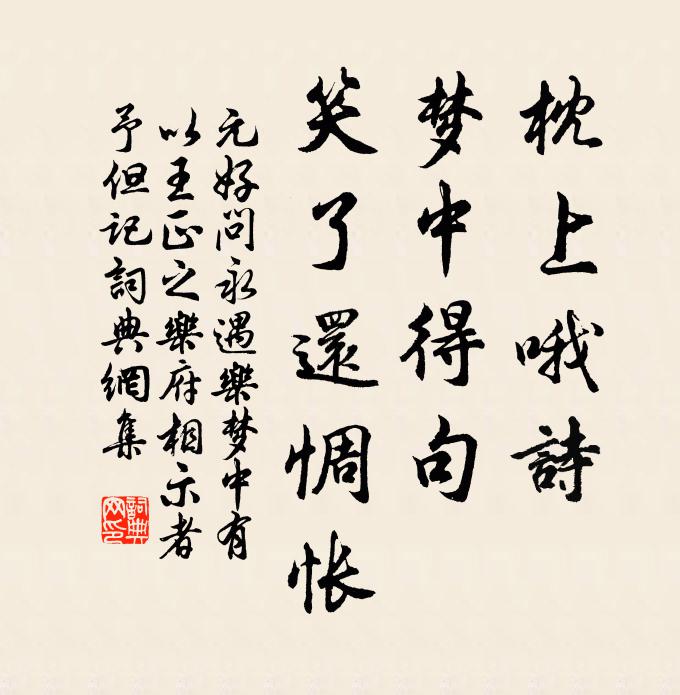 枕上哦詩
梦中得句
笑了還惆怅
元好问永遇樂梦中有
以王正之樂府相示者
予但记詞典網集
詞典
网印